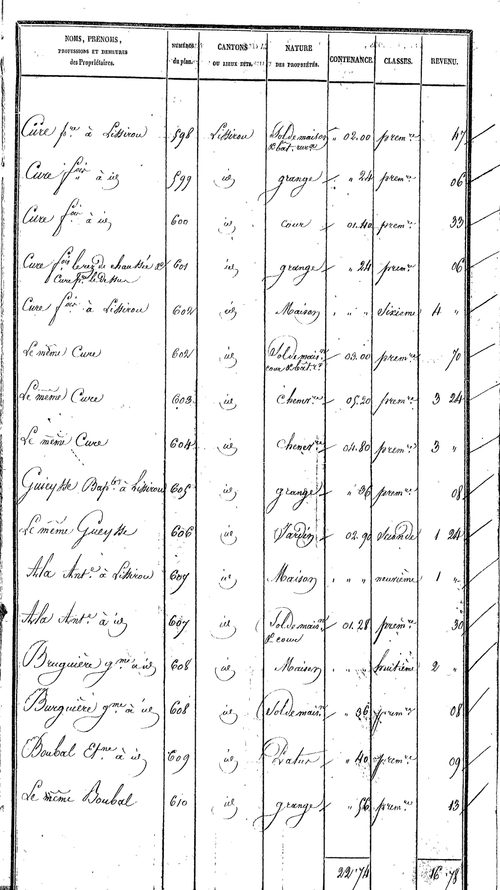 NOMS, PRÉNOMS, PROFESSIONS ET DEMEURES des Propriétaires. | NUMÉROS du plan. | CANTONS OU LIEUX DITS. | NATURE DES PROPRIÉTÉS. | CONTENANCE. | CLASSES. | REVENU.
Cure pre à Lissirou 598 Lissirou Sol de maison & bat. rur. " 02.00 premre " 47
Cure à id 599 id grange " 24 premre 06
Cure à id 600 id cour 01.40 premre 33
Cure le rez de chaussée & Cure pre le dessus 601 id grange " 24 premre 06
Cure à Lissirou 602 id Maison " " " Sixième 4 "
Le même Cure 602 id Sol de maison cour & bat. 03.00 premre 70
Le même Cure 603 id chenere 05.20 premre 3 24
Le même Cure 604 id chenere 04.80 premre 3 "
Gueysse Bapte à Lissirou 605 id grange " 36 premre 08
Le même Gueysse 606 id Jardin 02.90 Seconde 1 24
Ala Ante à Lissirou 607 id Maison " " " neuvième 1 "
Ala Ante à id 607 id Sol de maison & cour 01.28 premre 30
Bruguière gme à id 608 id Maison " " " huitième 2 "
Burguière gme à id 608 id Sol de maison " 36 premre 08
Boubal Etne à id 609 id Patus " 40 premre 09
Le même Boubal 610 id grange " 56 premre 13
22 74 16 78